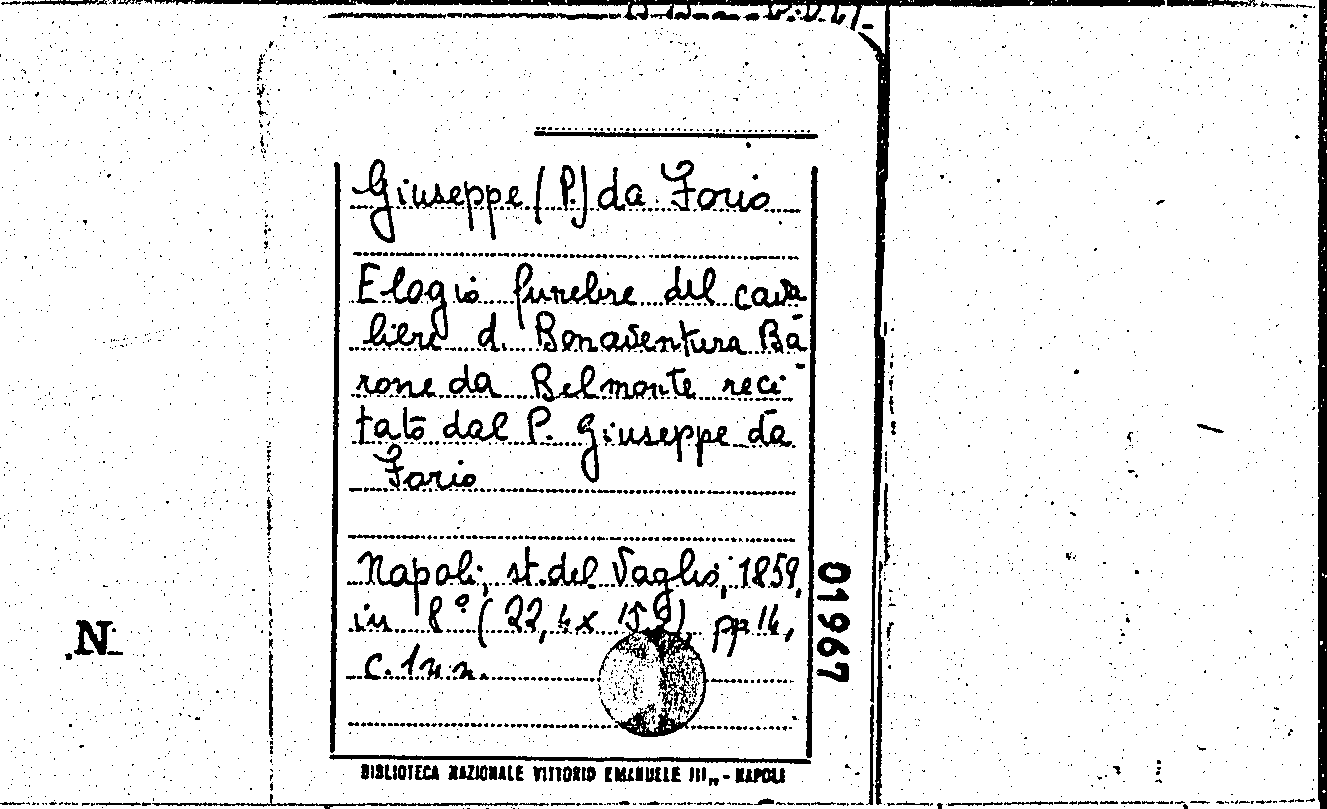 Giuseppe (P.) da Forio
Elogio funebre del cava-
liere d. Bonaventura Ba-
rone da Belmonte reci-
tato dal P. Giuseppe da
Forio
Napoli, st. del Vaglio, 1859,
in 8° (22,4 x 15,2), pp 14,
c. 1 n.n.
01967
N
BIBLIOTECA NAZIONALE VITTORIO EMANUELE III„ - NAPOLI